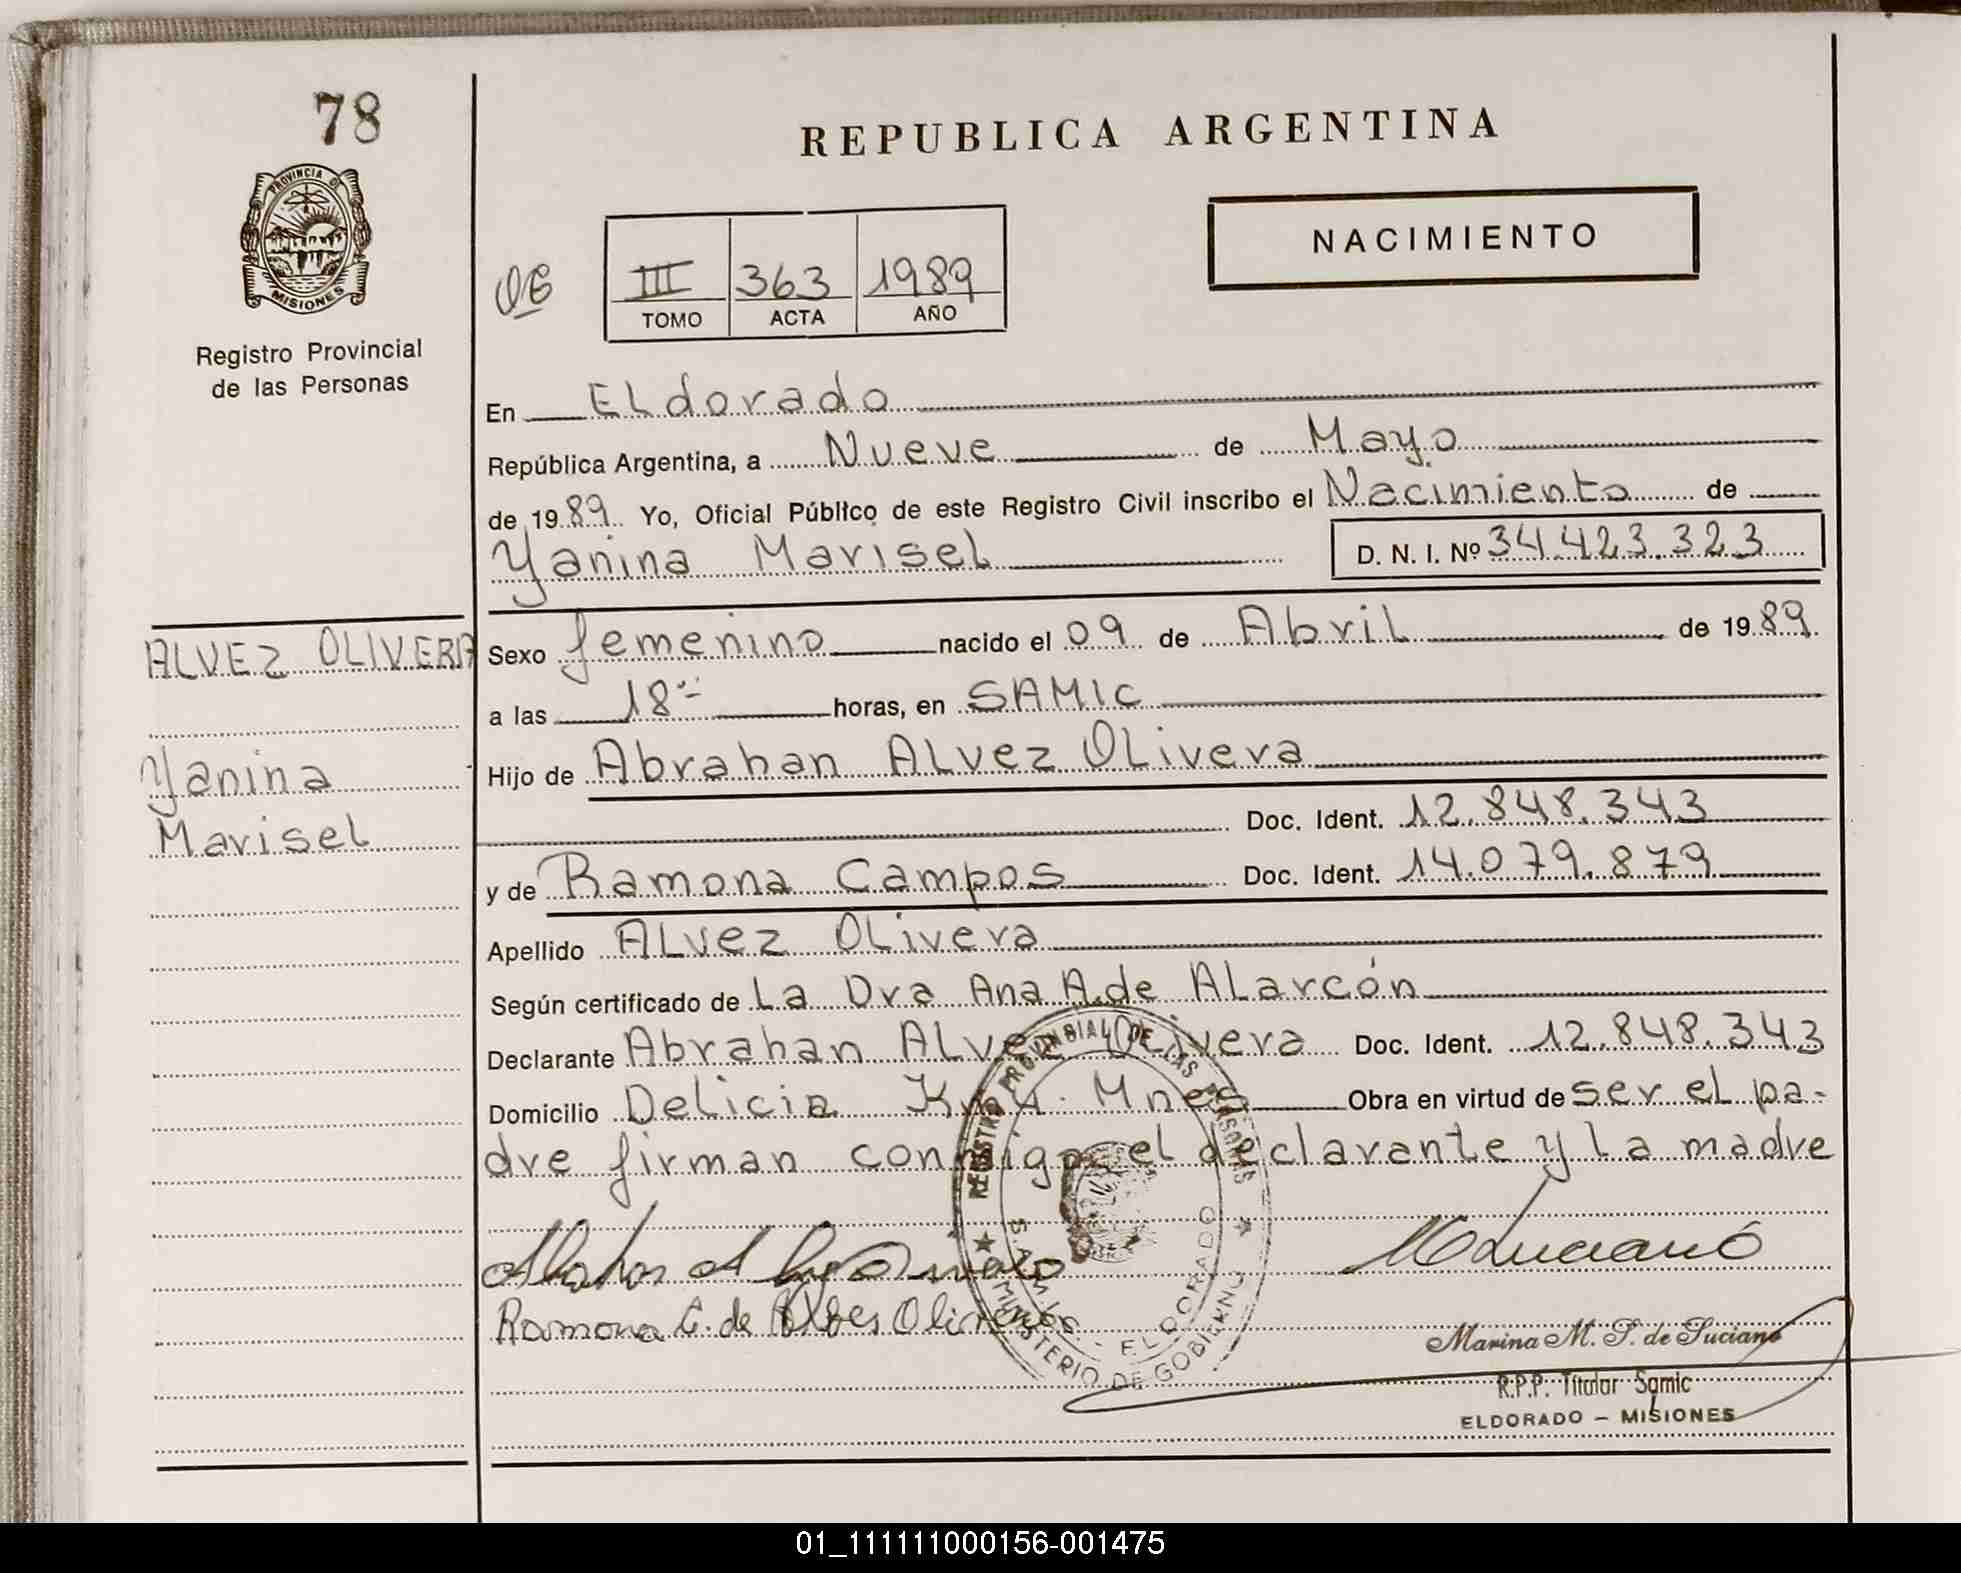 78
PROVINCIA DE
MISIONES
Registro Provincial
de las Personas
ALVEZ OLIVERA
Yanina
Marisel
REPUBLICA ARGENTINA
NACIMIENTO
III 363 1989
TOMO ACTA AÑO
En Eldorado
República Argentina, a Nueve de Mayo
de 1989 Yo, Oficial Público de este Registro Civil inscribo el Nacimiento de
Yanina Marisel D. N. I. Nº 34.423.323
Sexo femenino nacido el 09 de Abril de 1989
a las 18 horas, en SAMIC
Hijo de Abrahan Alvez Olivera
Doc. Ident. 12.848.343
y de Ramona Campos Doc. Ident. 14.079.879
Apellido Alvez Olivera
Según certificado de La Dra Ana A. de Alarcón
Declarante Abrahan Alvez Olivera Doc. Ident. 12.848.343
Domicilio Delicia Mnes Obra en virtud de ser el pa-
dre firman conmigo el declarante y la madre
REGISTRO PROVINCIAL DE LAS PERSONAS
S.A.M.I.C. - ELDORADO
MINISTERIO DE GOBIERNO
Ramona C. de Olivera
Marina M. P. de Luciano
R.P.P. Titular Samic
ELDORADO - MISIONES
01_111111000156-001475